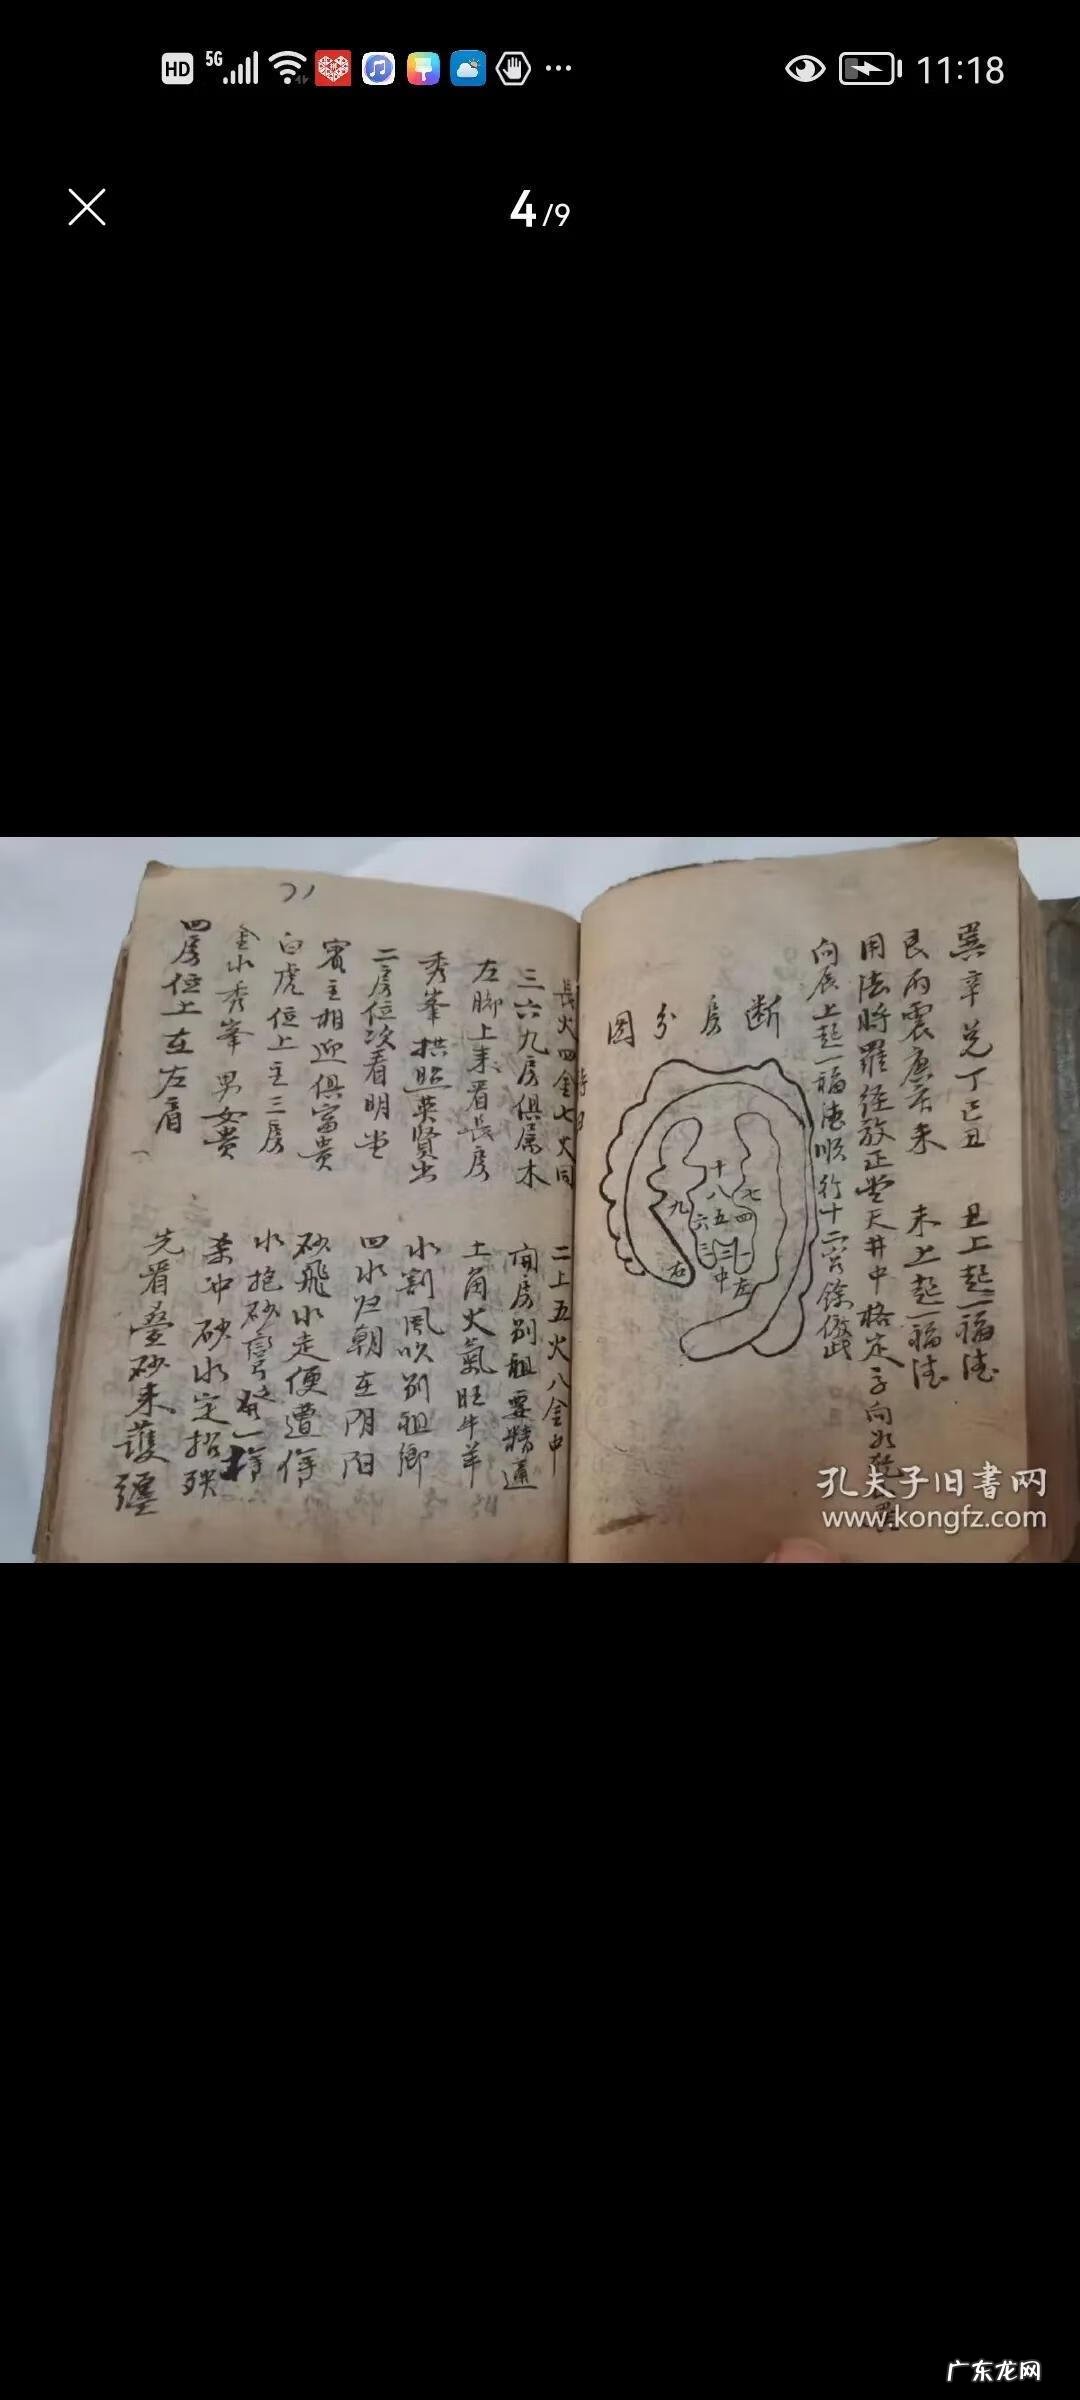 HD 5G 11:18
4/9
巽辛兑丁巳丑 丑上起福德
艮丙震庚亥未 未上起福德
用法將羅经放正堂天井中格定子向如乾
向辰上起福德順行十二宮餘倣此
断房分图
十 八 五 二 中
七 四 一 左
九 六 三 右
長火四金七火同 二土五火八金中
三六九房俱屬木 间房别祖要精通
左脚上来看長房 土角火氣旺牛羊
秀峯拱照英賢出 水割風吹别祖鄉
二房位次看明堂 四水归朝在阴阳
賓主相迎俱富貴 砂飛水走便遭
白虎位上主三房 水抱砂彎發一
金水秀峯男女貴 砂水定招殃
四房位上在左肩 先看叠砂来護纏
孔夫子旧書网
www.kongfz.com
广东龙网